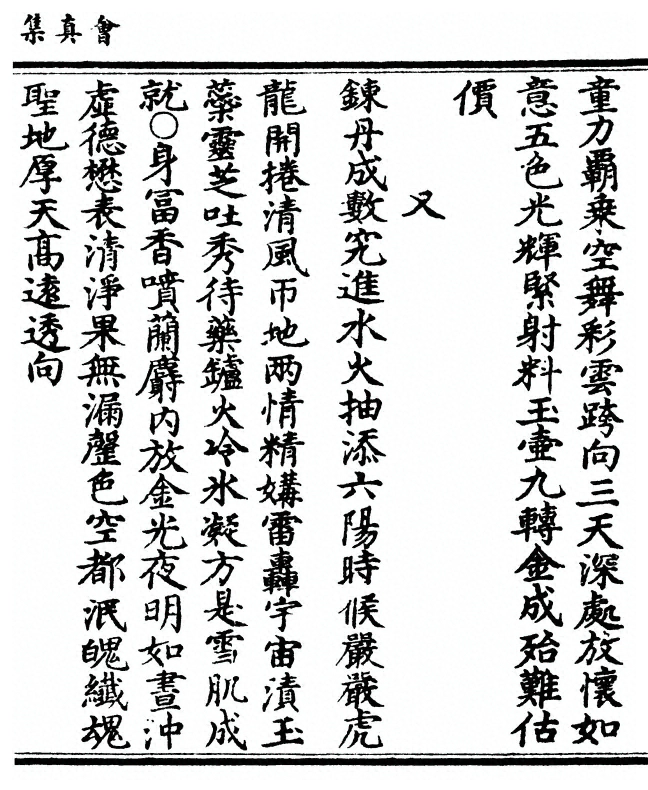 會真集
童力霸乘空舞彩雲跨向三天深處放懷如
意五色光輝緊射料玉壺九轉金成殆難估
價
又
鍊丹成數究進水火抽添六陽時候嚴嚴虎
龍開捲清風帀地兩情精媾雷轟宇宙漬玉
蘂靈芝吐秀待藥鑪火冷氷凝方是雪肌成
就○身冨香噴蘭麝內放金光夜明如晝沖
虛德懋表清淨果無漏聲色空都泯魄纎魂
聖地厚天高遠透向